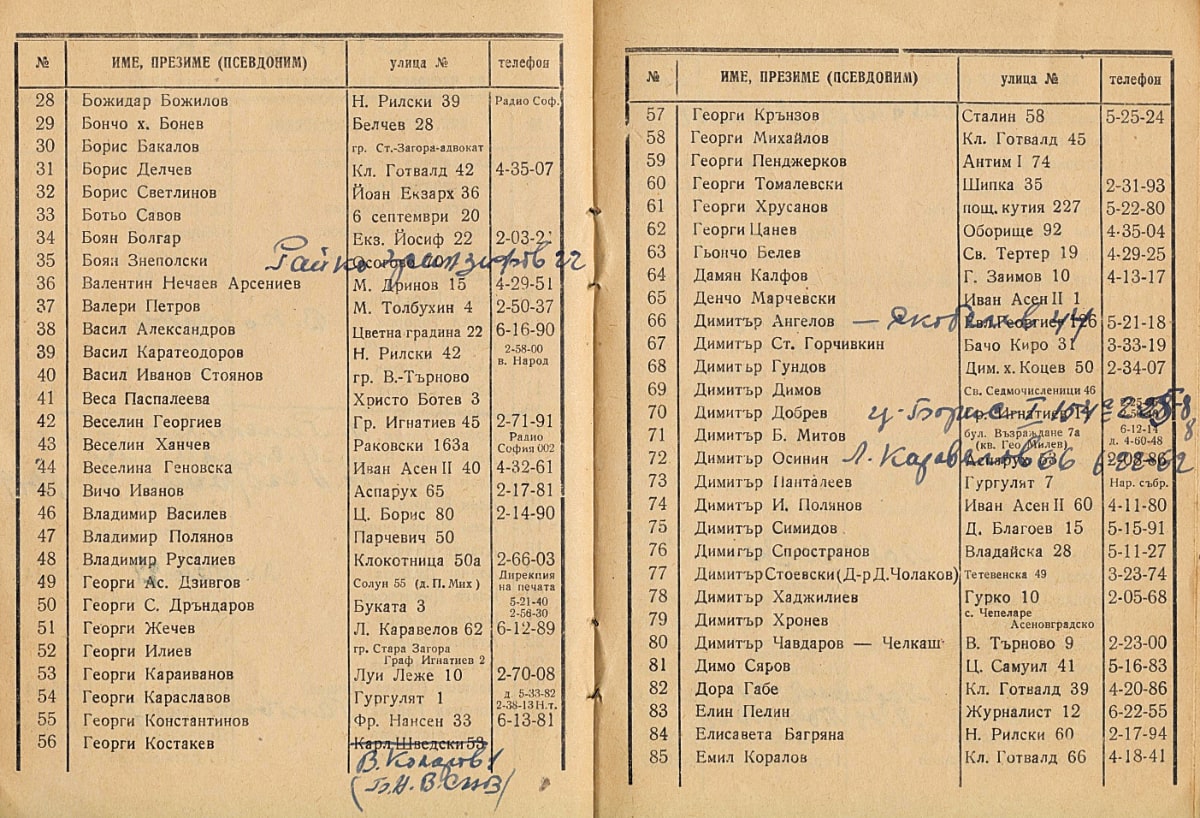 № ИМЕ, ПРЕЗИМЕ (ПСЕВДОНИМ) улица № телефон
28 Божидар Божилов Н. Рилски 39 Радио Соф.
29 Бончо х. Бонев Белчев 28
30 Борис Бакалов гр. Ст.-Загора-адвокат
31 Борис Делчев Кл. Готвалд 42 4-35-07
32 Борис Светлинов Йоан Екзарх 36
33 Ботьо Савов 6 септември 20
34 Боян Болгар Екз. Йосиф 22 2-03-2
35 Боян Знеполски Райко 22
36 Валентин Нечаев Арсениев М. Дринов 15 4-29-51
37 Валери Петров М. Толбухин 4 2-50-37
38 Васил Александров Цветна градина 22 6-16-90
39 Васил Каратеодоров Н. Рилски 42 2-58-00
в. Народ
40 Васил Иванов Стоянов гр. В.-Търново
41 Веса Паспалеева Христо Ботев 3
42 Веселин Георгиев Гр. Игнатиев 45 2-71-91
43 Веселин Ханчев Раковски 163а Радио
София 002
44 Веселина Геновска Иван Асен II 40 4-32-61
45 Вичо Иванов Аспарух 65 2-17-81
46 Владимир Василев Ц. Борис 80 2-14-90
47 Владимир Полянов Парчевич 50
48 Владимир Русалиев Клокотница 50а 2-66-03
49 Георги Ас. Дзивгов Солун 55 (д. П. Мих) Дирекция
на печата
50 Георги С. Дръндаров Буката 3 5-21-40
2-56-30
51 Георги Жечев Л. Каравелов 62 6-12-89
52 Георги Илиев гр. Стара Загора
Граф Игнатиев 2
53 Георги Караиванов Луи Леже 10 2-70-08
54 Георги Караславов Гургулят 1 д. 5-33-82
2-38-13 Н.т.
55 Георги Константинов Фр. Нансен 33 6-13-81
56 Георги Костакев Карл Шведски 53
В. Коларов 1
№ ИМЕ, ПРЕЗИМЕ (ПСЕВДОНИМ) улица № телефон
57 Георги Крънзов Сталин 58 5-25-24
58 Георги Михайлов Кл. Готвалд 45
59 Георги Пенджерков Антим I 74
60 Георги Томалевски Шипка 35 2-31-93
61 Георги Хрусанов пощ. кутия 227 5-22-80
62 Георги Цанев Оборище 92 4-35-04
63 Гьончо Белев Св. Тертер 19 4-29-25
64 Дамян Калфов Г. Заимов 10 4-13-17
65 Денчо Марчевски Иван Асен II 1
66 Димитър Ангелов — 44 5-21-18
67 Димитър Ст. Горчивкин Бачо Киро 31 3-33-19
68 Димитър Гундов Дим. х. Коцев 50 2-34-07
69 Димитър Димов Св. Седмочисленици 46
70 Димитър Добрев ц. Борис Игнатиев
71 Димитър Б. Митов бул. Възраждане 7а 6-12-14
(кв. Гео Милев) д. 4-60-48
72 Димитър Осинин Л. Каравелов 66
73 Димитър Панталеев Гургулят 7 Нар. събр.
74 Димитър И. Полянов Иван Асен II 60 4-11-80
75 Димитър Симидов Д. Благоев 15 5-15-91
76 Димитър Спространов Владайска 28 5-11-27
77 Димитър Стоевски (Д-р Д. Чолаков) Тетевенска 49 3-23-74
78 Димитър Хаджилиев Гурко 10 2-05-68
79 Димитър Хронев с. Чепеларе
Асеновградско
80 Димитър Чавдаров — Челкаш В. Търново 9 2-23-00
81 Димо Сяров Ц. Самуил 41 5-16-83
82 Дора Габе Кл. Готвалд 39 4-20-86
83 Елин Пелин Журналист 12 6-22-55
84 Елисавета Багряна Н. Рилски 60 2-17-94
85 Емил Коралов Кл. Готвалд 66 4-18-41